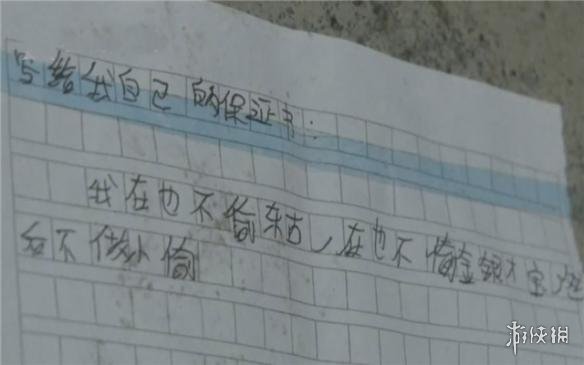 写给我自己的保证书:
我在也不偷东古,在也不偷金银才宝
不做小偷
游侠网